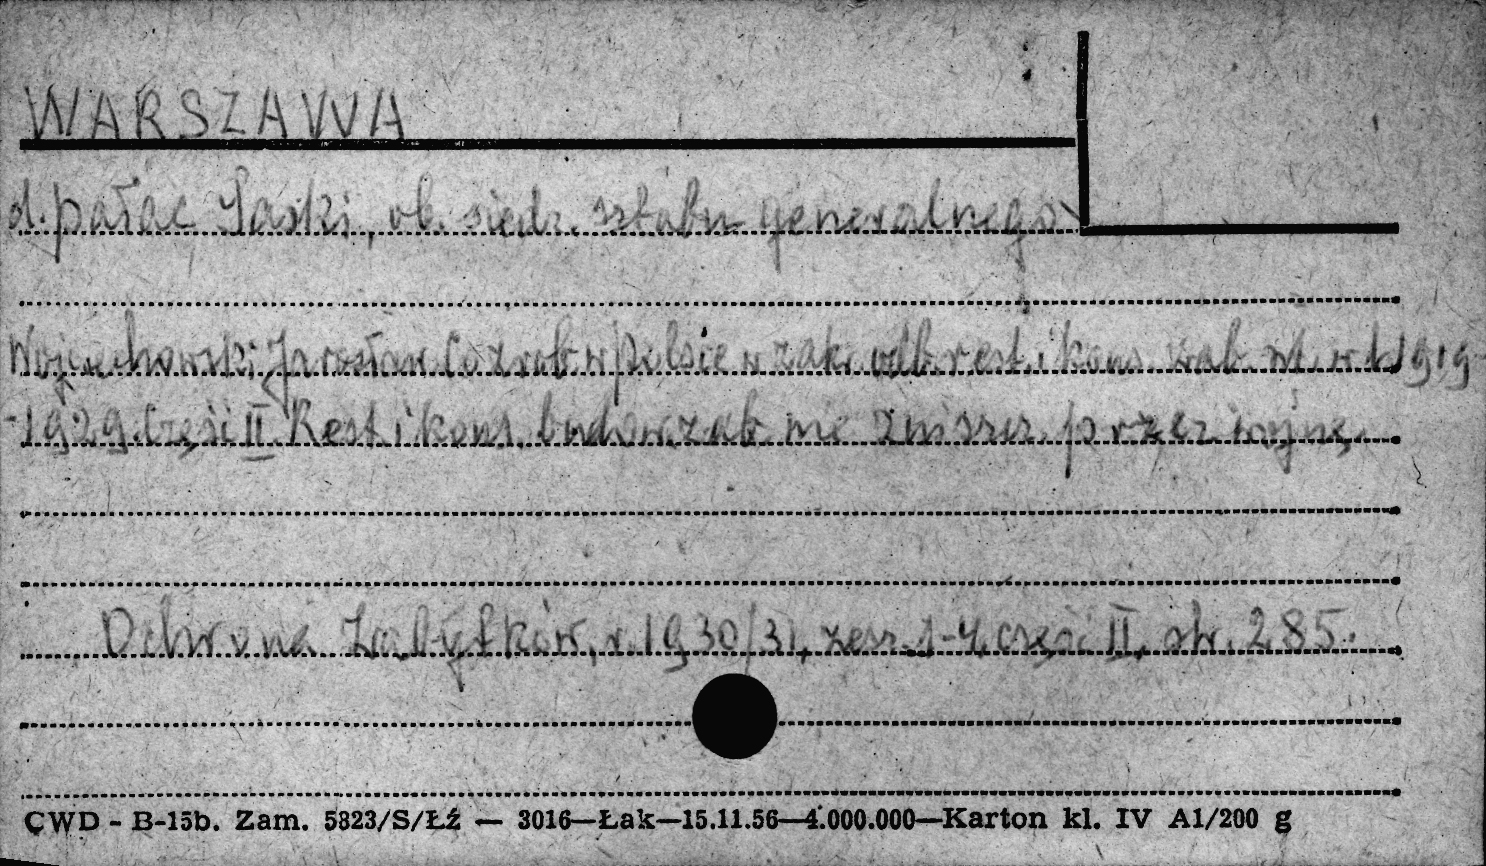 WARSZAWA
d. pałac Saski, ob. siedz. sztabu generalnego
Wojciechowski Jarosław Co zrob. w Polsce w zakr. odb. rest. i kons. zab. szt. w l. 1919-
-1929. Część II. Rest. i kons. budow. zab. nie zniszcz. przez wojnę.
Ochrona Zabytków, r. 1930/31, zesz. 1-4, część II, str. 285.
CWD - B-15b. Zam. 5823/S/Łź — 3016—Łak—15.11.56—4.000.000—Karton kl. IV A1/200 g